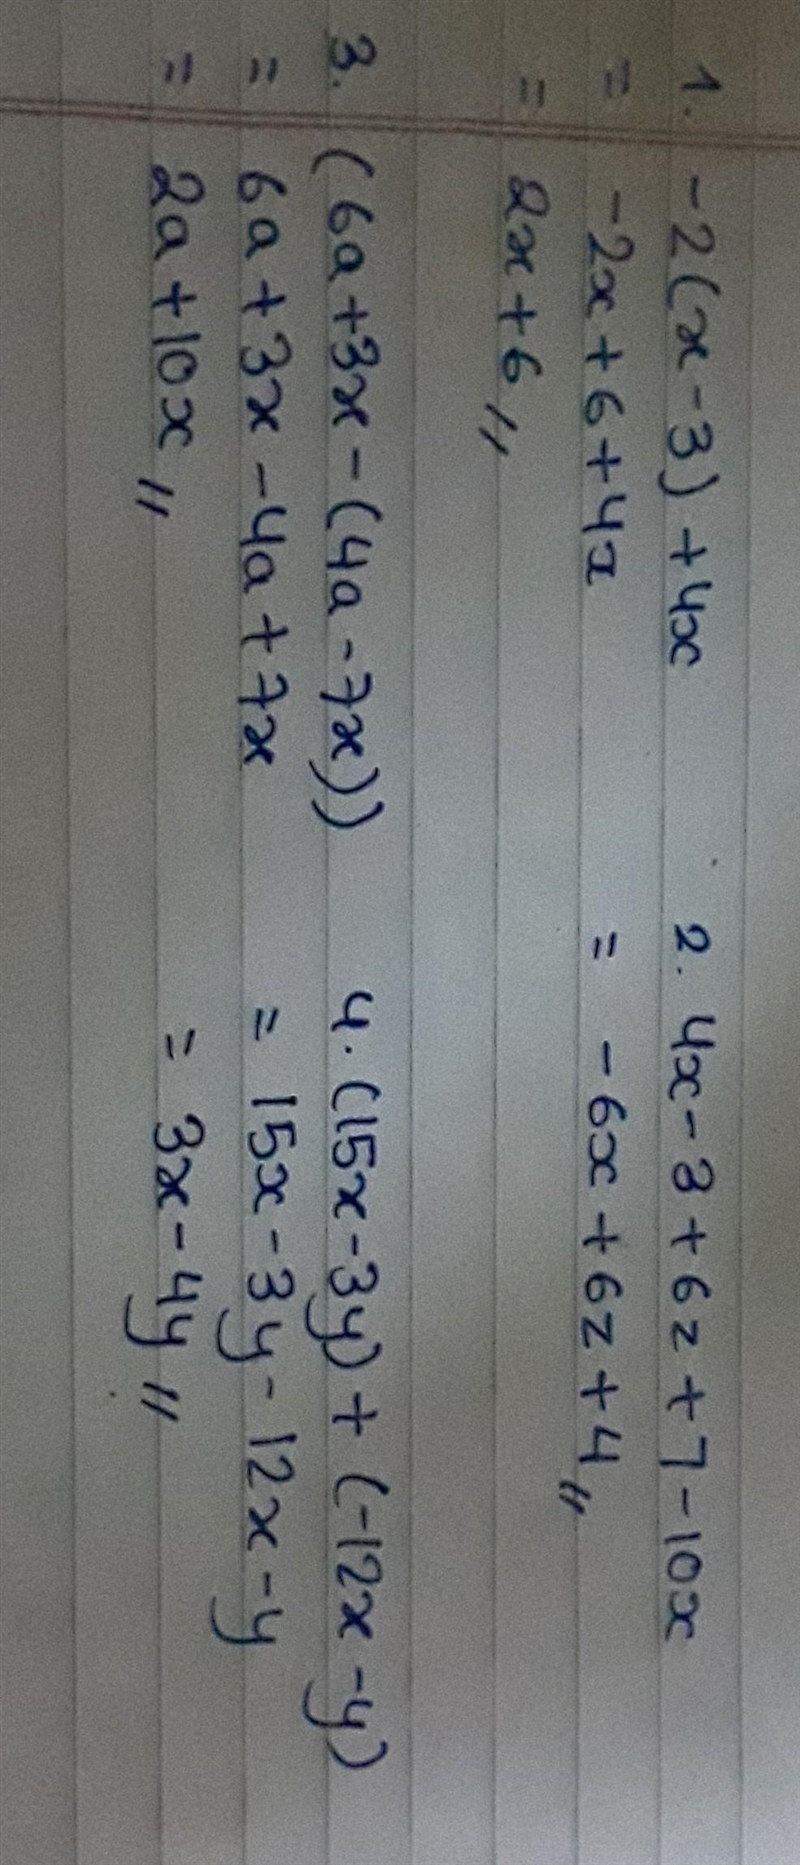 1. -2(x-3)+4x
= -2x+6+4x
= 2x+6 //
2. 4x-3+6z+7-10x
= -6x+6z+4 //
3. (6a+3x-(4a-7x))
= 6a+3x-4a+7x
= 2a+10x //
4. (15x-3y)+(-12x-y)
= 15x-3y-12x-y
= 3x-4y //